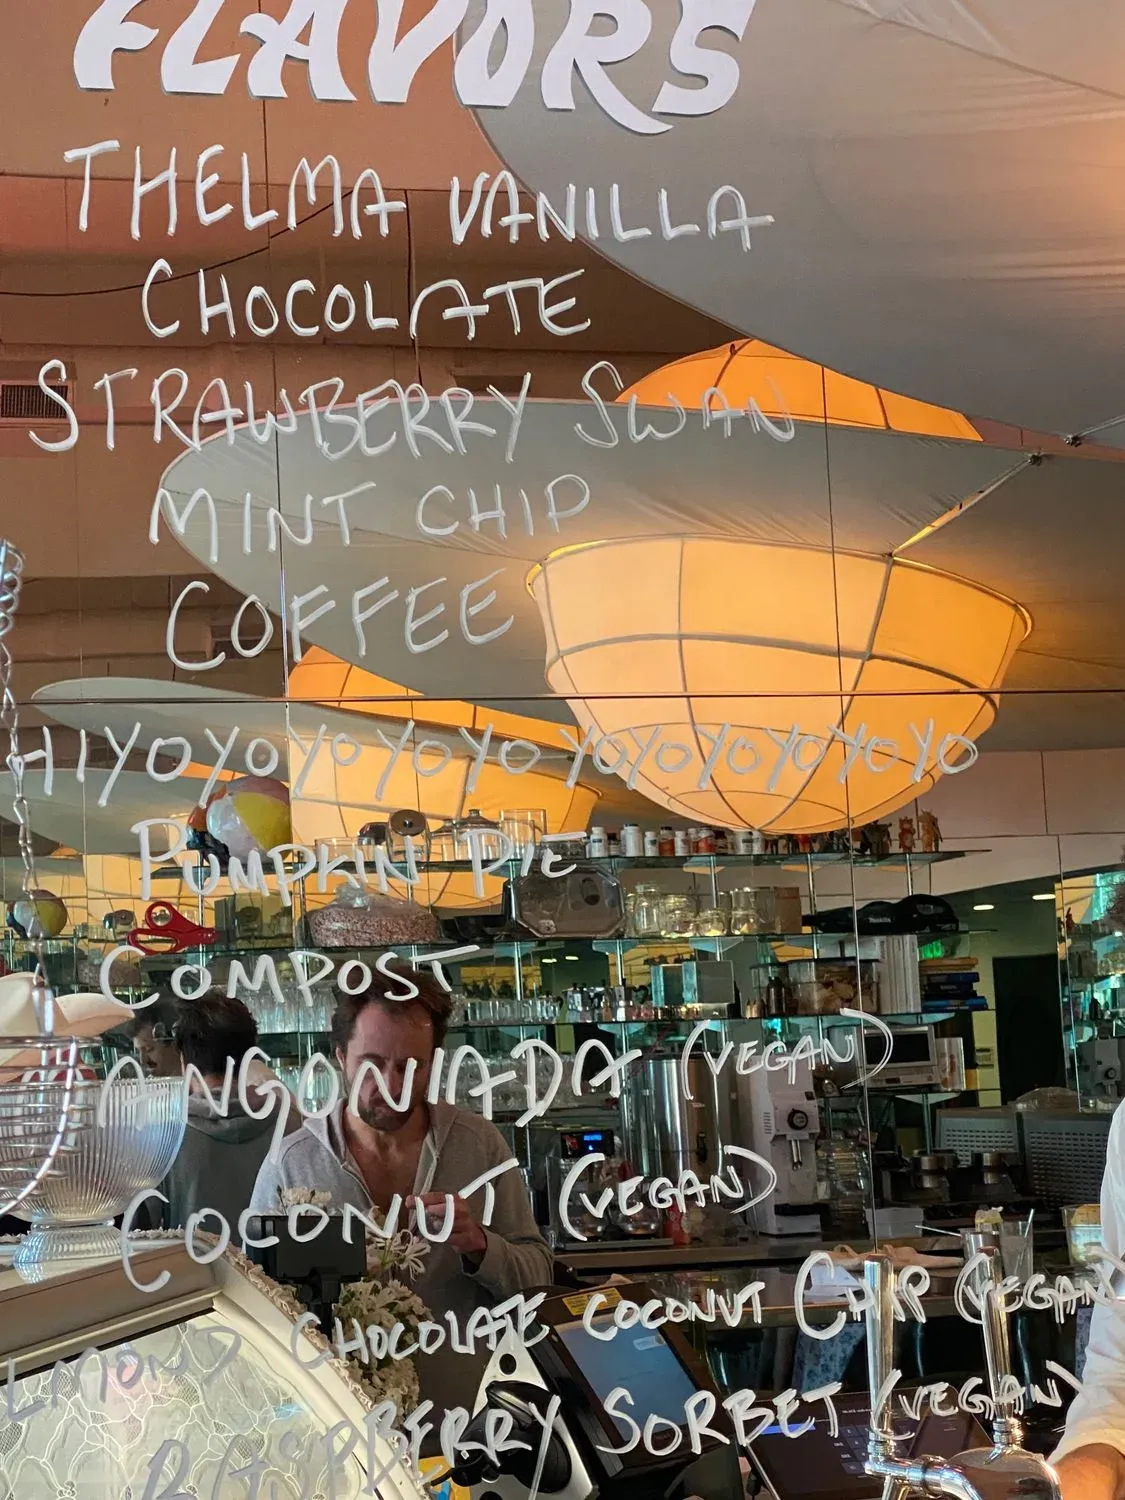 FLAVORS
THELMA VANILLA
CHOCOLATE
STRAWBERRY SWAN
MINT CHIP
COFFEE
HIYOYOYOYOYOYOYOYOYOYOYO
PUMPKIN PIE
COMPOST
ANGONIADA (VEGAN)
COCONUT (VEGAN)
LMOND CHOCOLATE COCONUT CHIP (VEGAN)
RASPBERRY SORBET (VEGAN)